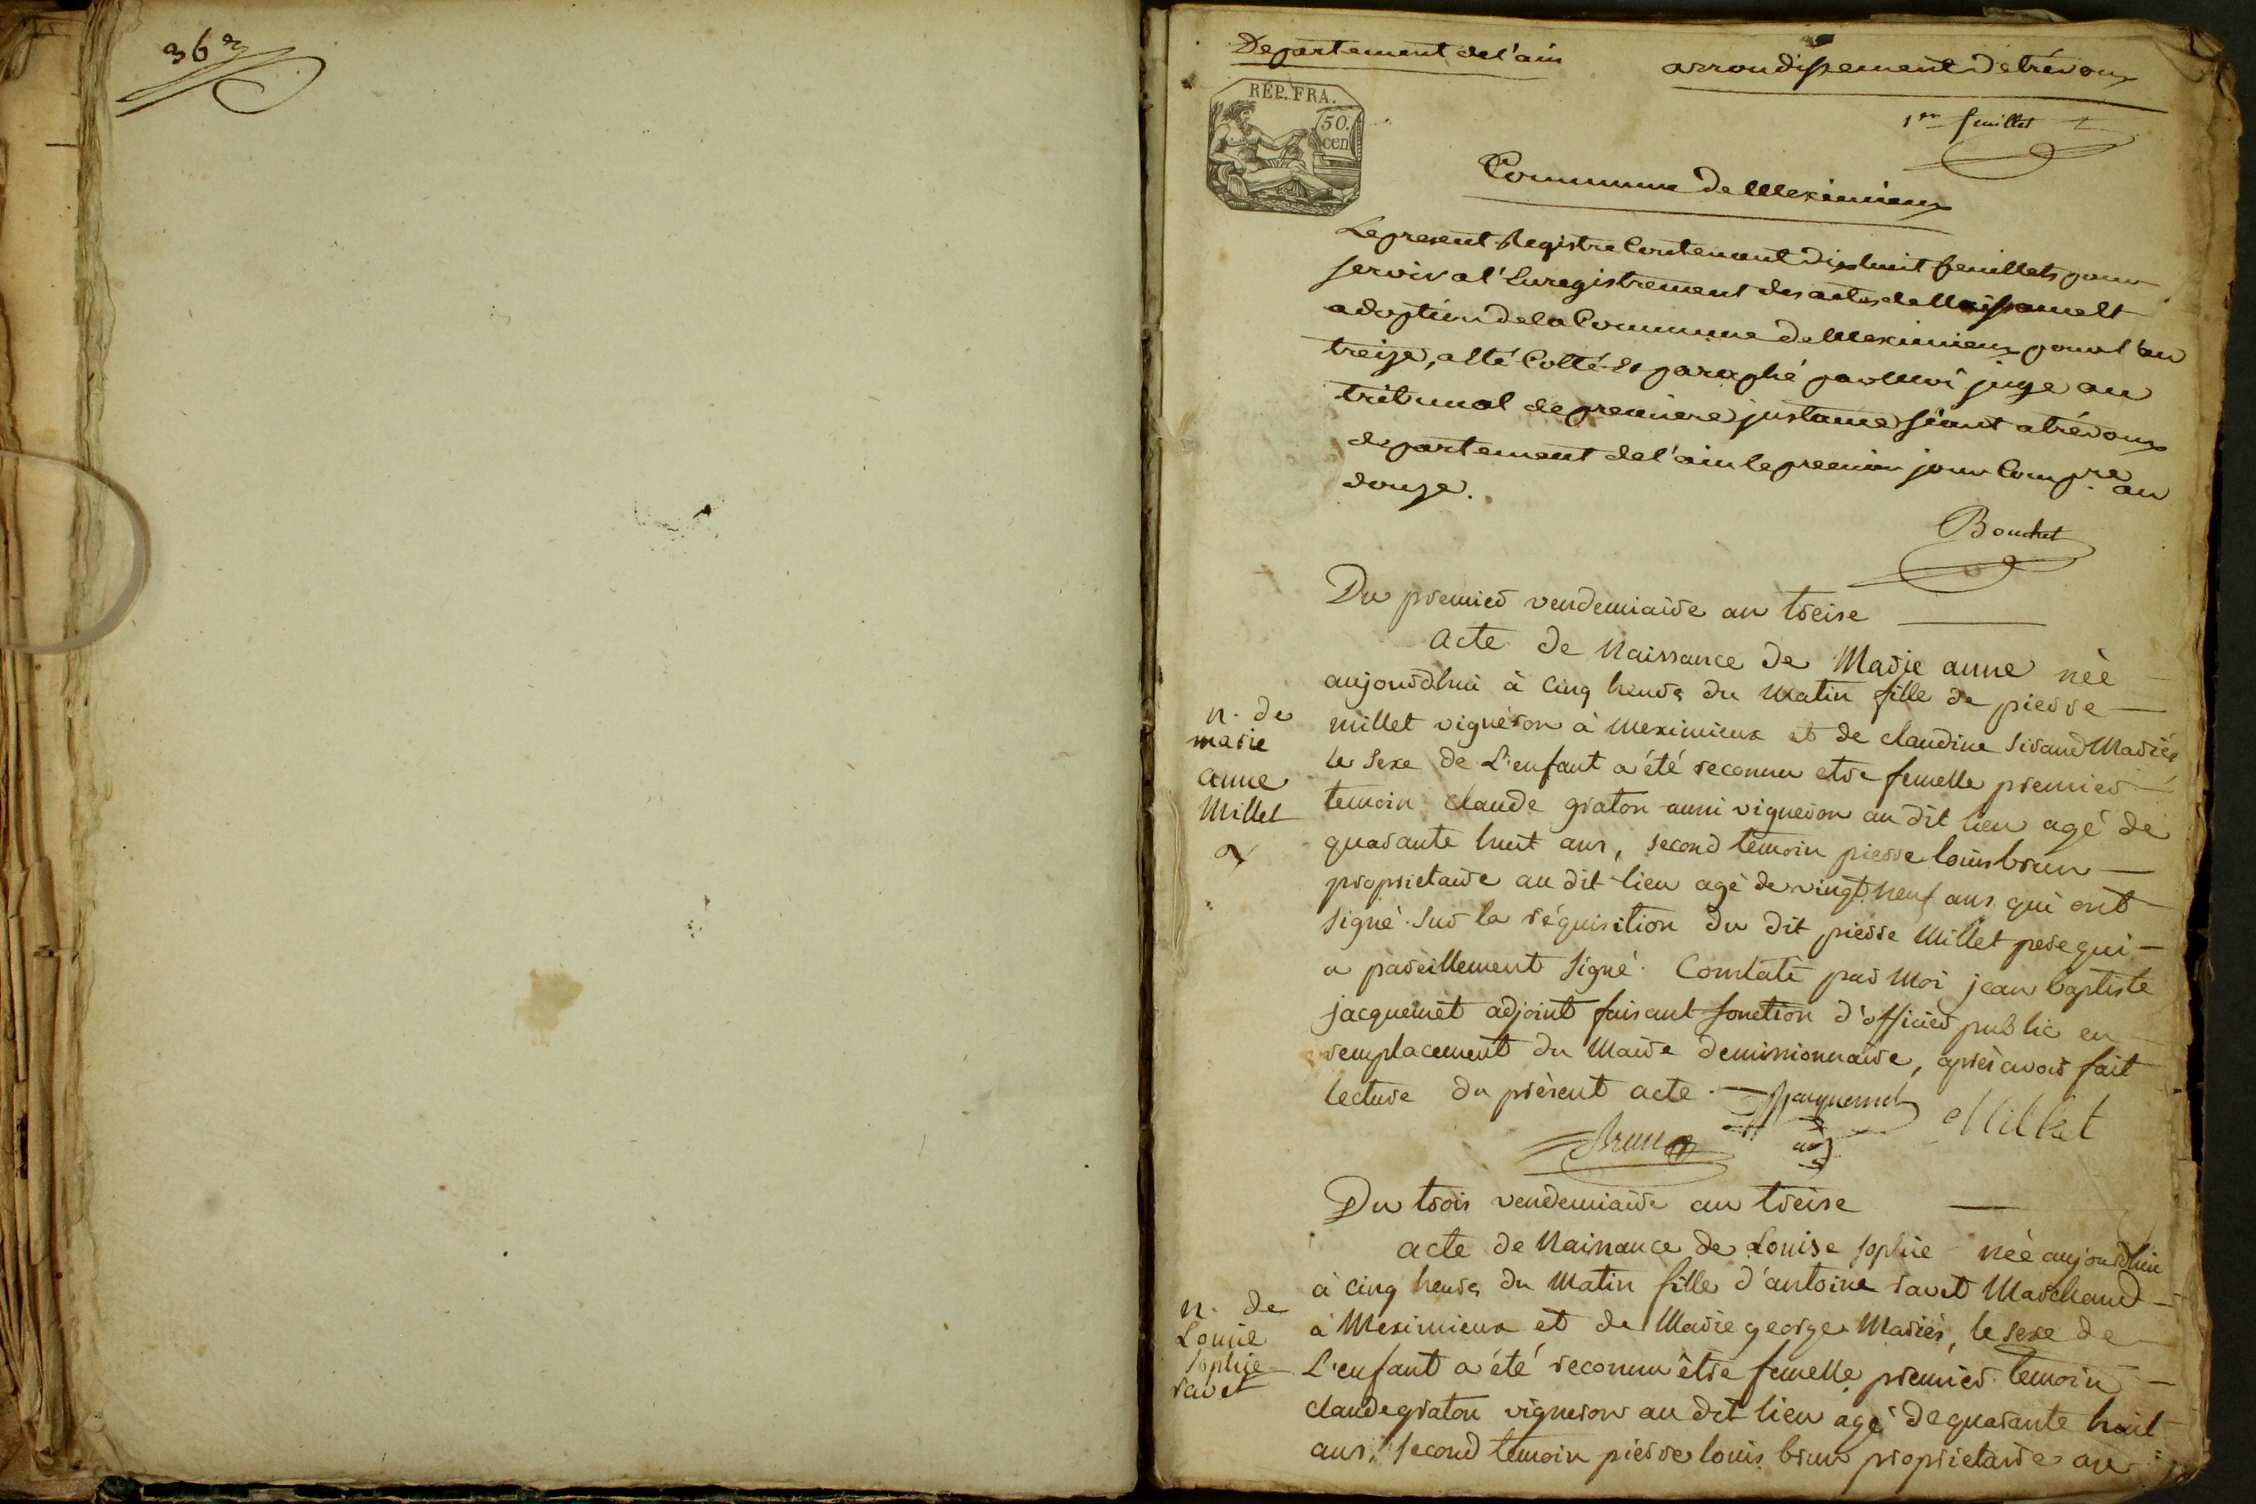 36
Departement de l'ain
arrondissement de trévoux
REP. FRA.
50.
cen
1er feuillet
Commune de Meximieux
Le present Registre Contenant dix huit feuillets pour
servir a l'Enregistrement des actes de Naissance et
adoption de la Commune de Meximieux pour l'an
treize, a Eté Cotté et paraphé par Moi juge au
tribunal de premiere justance séant a trévoux
departement de l'ain le premier jour Comp.re an
douze.
Bouchet
Du premier vendemiaire an treise
acte de Naissance de Marie anne née
aujourdhui à cinq heures du matin fille de pierre
n. de
marie
anne
Millet
millet vigneron à meximieux et de claudine sirand Mariés
le sexe de L'enfant a été reconnu etre femelle premier
temoin claude graton aussi vigneron au dit lieu agé de
quarante huit ans, second temoin pierre louis brun
proprietaire au dit lieu agé de vingt neuf ans qui ont
signé. sur la réquisition du dit pierre Millet pere qui
a pareillement signé. Constaté par Moi jean baptiste
jacquemet adjoint faisant fonction d'officier public en
remplacement du Maire demissionnaire, après avoir fait
lecture du présent acte.
Jacquemet
adj
Millet
Brun
Du trois vendemiaire an treise
acte de Naissance de Louise sophie née aujourdhui
à cinq heures du Matin fille d'antoine ravet Marchand
n. de
Louise
sophie
ravet
à Meximieux et de Marie george Mariés, le sexe de
L'enfant a été reconnu être femelle premier temoin
claude graton vigneron au dit lieu agé de quarante huit
ans, second temoin pierre louis brun proprietaire au